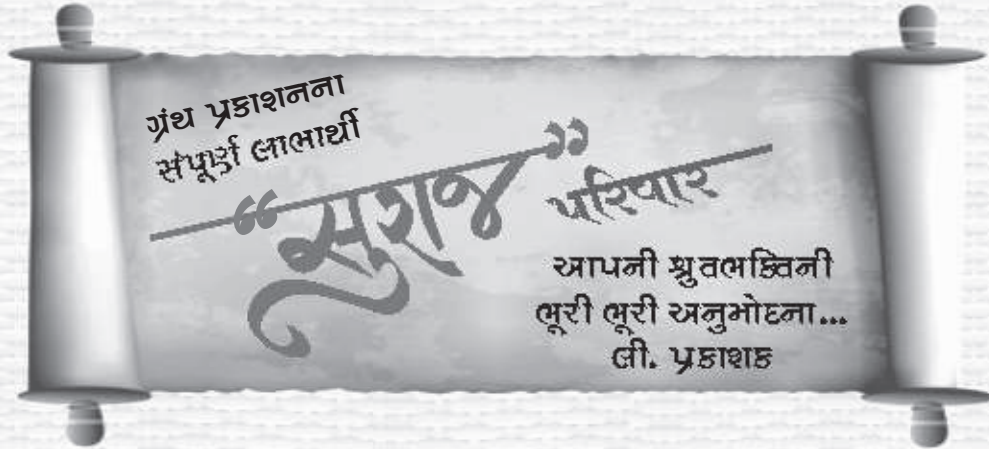 ગ્રંથ પ્રકાશનના
સંપૂર્ણ લાભાર્થી
“સુરાજ” પરિવાર
આપની શ્રુતભક્તિની
ભૂરી ભૂરી અનુમોદના...
લી. પ્રકાશક